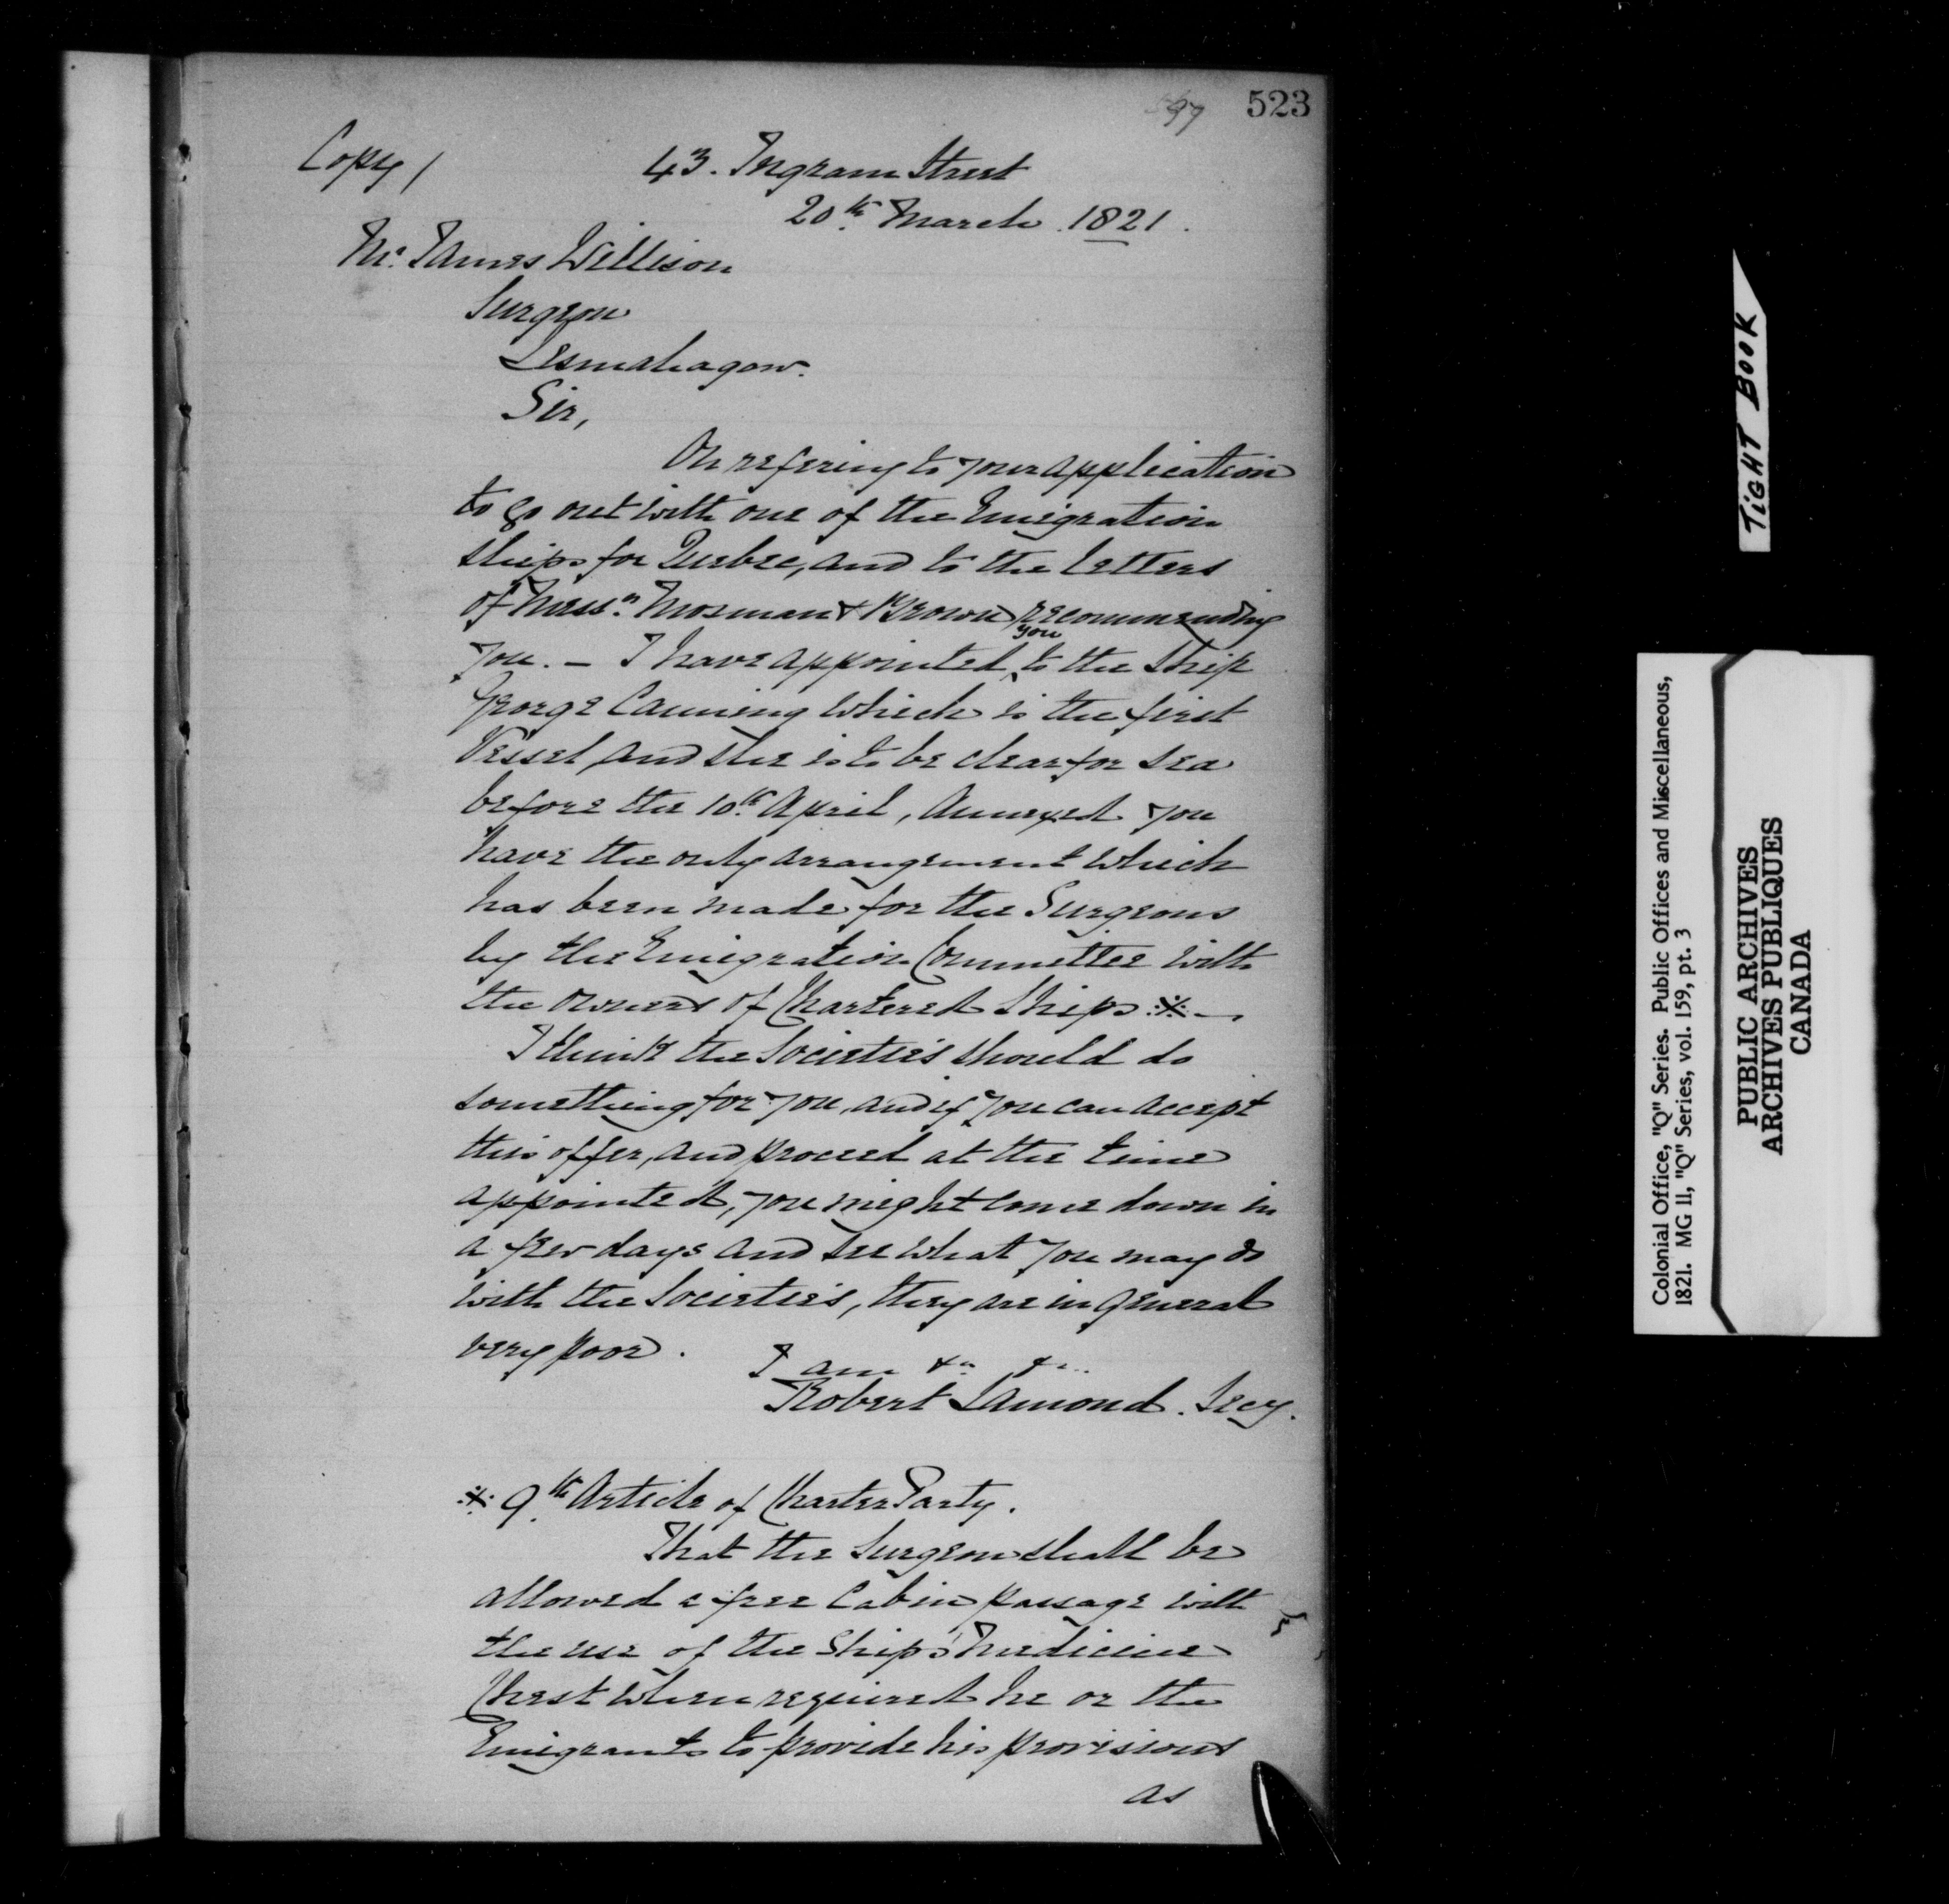 523
Copy /
43. Ingram Street
20th March 1821.
Mr. James Willison
Surgeon
Lesmahagow.
Sir,
On refering to your application
to go out with one of the Emigration
ships for Quebec, and to the letters
of Messrs. Mosman & Brown recommending
you. — I have appointed you to the Ship
George Canning which is the first
Vessel and she is to be clear for sea
before the 10th April, Annexed you
have the only arrangement which
has been made for the Surgeons
by the Emigration Committee with
the owners of Chartered Ships ※ —
I think the Societie's should do
something for you, and if you can accept
this offer, and proceed at the time
appointed, you might come down in
a few days and see what you may do
with the Societie's, they are in general
very poor.
I am &c &c..
Robert Lamond. Secy.
※ 9th Article of Charter Party.
That the Surgeon shall be
allowed a free Cabin passage with
the use of the Ships Medicine
Chest when required he or the
Emigrants to provide his provisions
as
TIGHT BOOK
Colonial Office, "Q" Series. Public Offices and Miscellaneous,
1821. MG 11, "Q" Series, vol. 159, pt. 3
PUBLIC ARCHIVES
ARCHIVES PUBLIQUES
CANADA